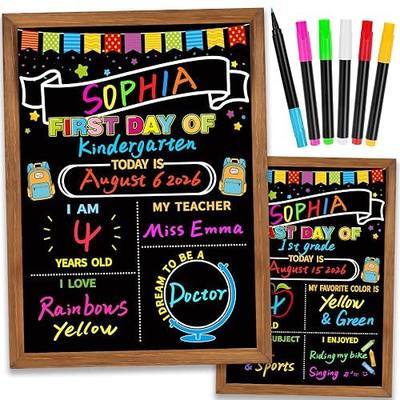 SOPHIA
FIRST DAY OF
Kindergarten
TODAY IS
August 6 2026
I AM
4
YEARS OLD
MY TEACHER
Miss Emma
I LOVE
Rainbows
Yellow
I DREAM TO BE A
Doctor
SOPHIA
FIRST DAY OF
1st grade
TODAY IS
August 15 2026
MY FAVORITE COLOR IS
Yellow
& Green
OLD
SUBJECT
& Sports
I ENJOYED
Riding my bike
Singing